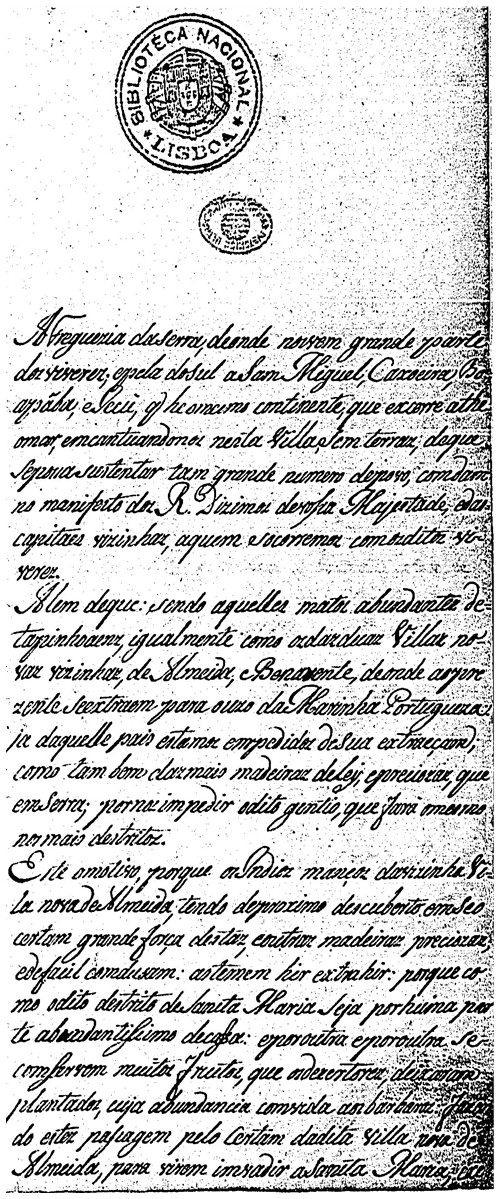 BIBLIOTÉCA NACIONAL
* LISBOA *
A Fregueria da Serra, deonde nos vem grande parte
dos viveres, epela do Sul a San Miguel, Caxoeira,
e q' he omesmo continente, que excorre athe
omar, emcantuandonos nesta Villa, sem terras, deque
sepossa sustentar tam grande numero depovo, com dam
no manifesto dos R. Dizimos devossa Majestade, edas
capitães vizinhas, aquem socorremos comosditos vi-
veres.
Alem deque: sendo aquelles matos abundantes de-
tapinhoaens, igualmente como osdasduas Villas no-
vas vizinhas, de Almeida, e Benavente, deonde aopre
zente seextraem para ouzo da Marinha Portugueza:
ja daquelle pais estamos empedidos desua extraçam,
como tambem dasmais madeiras deley, epreciozas, que
emSerra; pornos impedir odito gentio, que fara omesmo
nosmais destritos.
Este omotivo, porque os Indios mansos davizinha Vi-
la nova de Almeida, tendo deproximo descuberto emseo
certam grande força destas, eoutras madeiras preciozas,
edefacil condusam: astemem hir extrahir: porque co
mo odito destrito de Santa Maria seja porhuma par
te abundantissimo decassa: eporoutra eporoutra se-
comservem muitos Frutos, que osdezertores, deixaram
plantados, cuja abundancia convida aos barbaros:
do estes passagem pelo Certam dadita Villa nova de
Almeida, para virem invadir a Santa Maria,